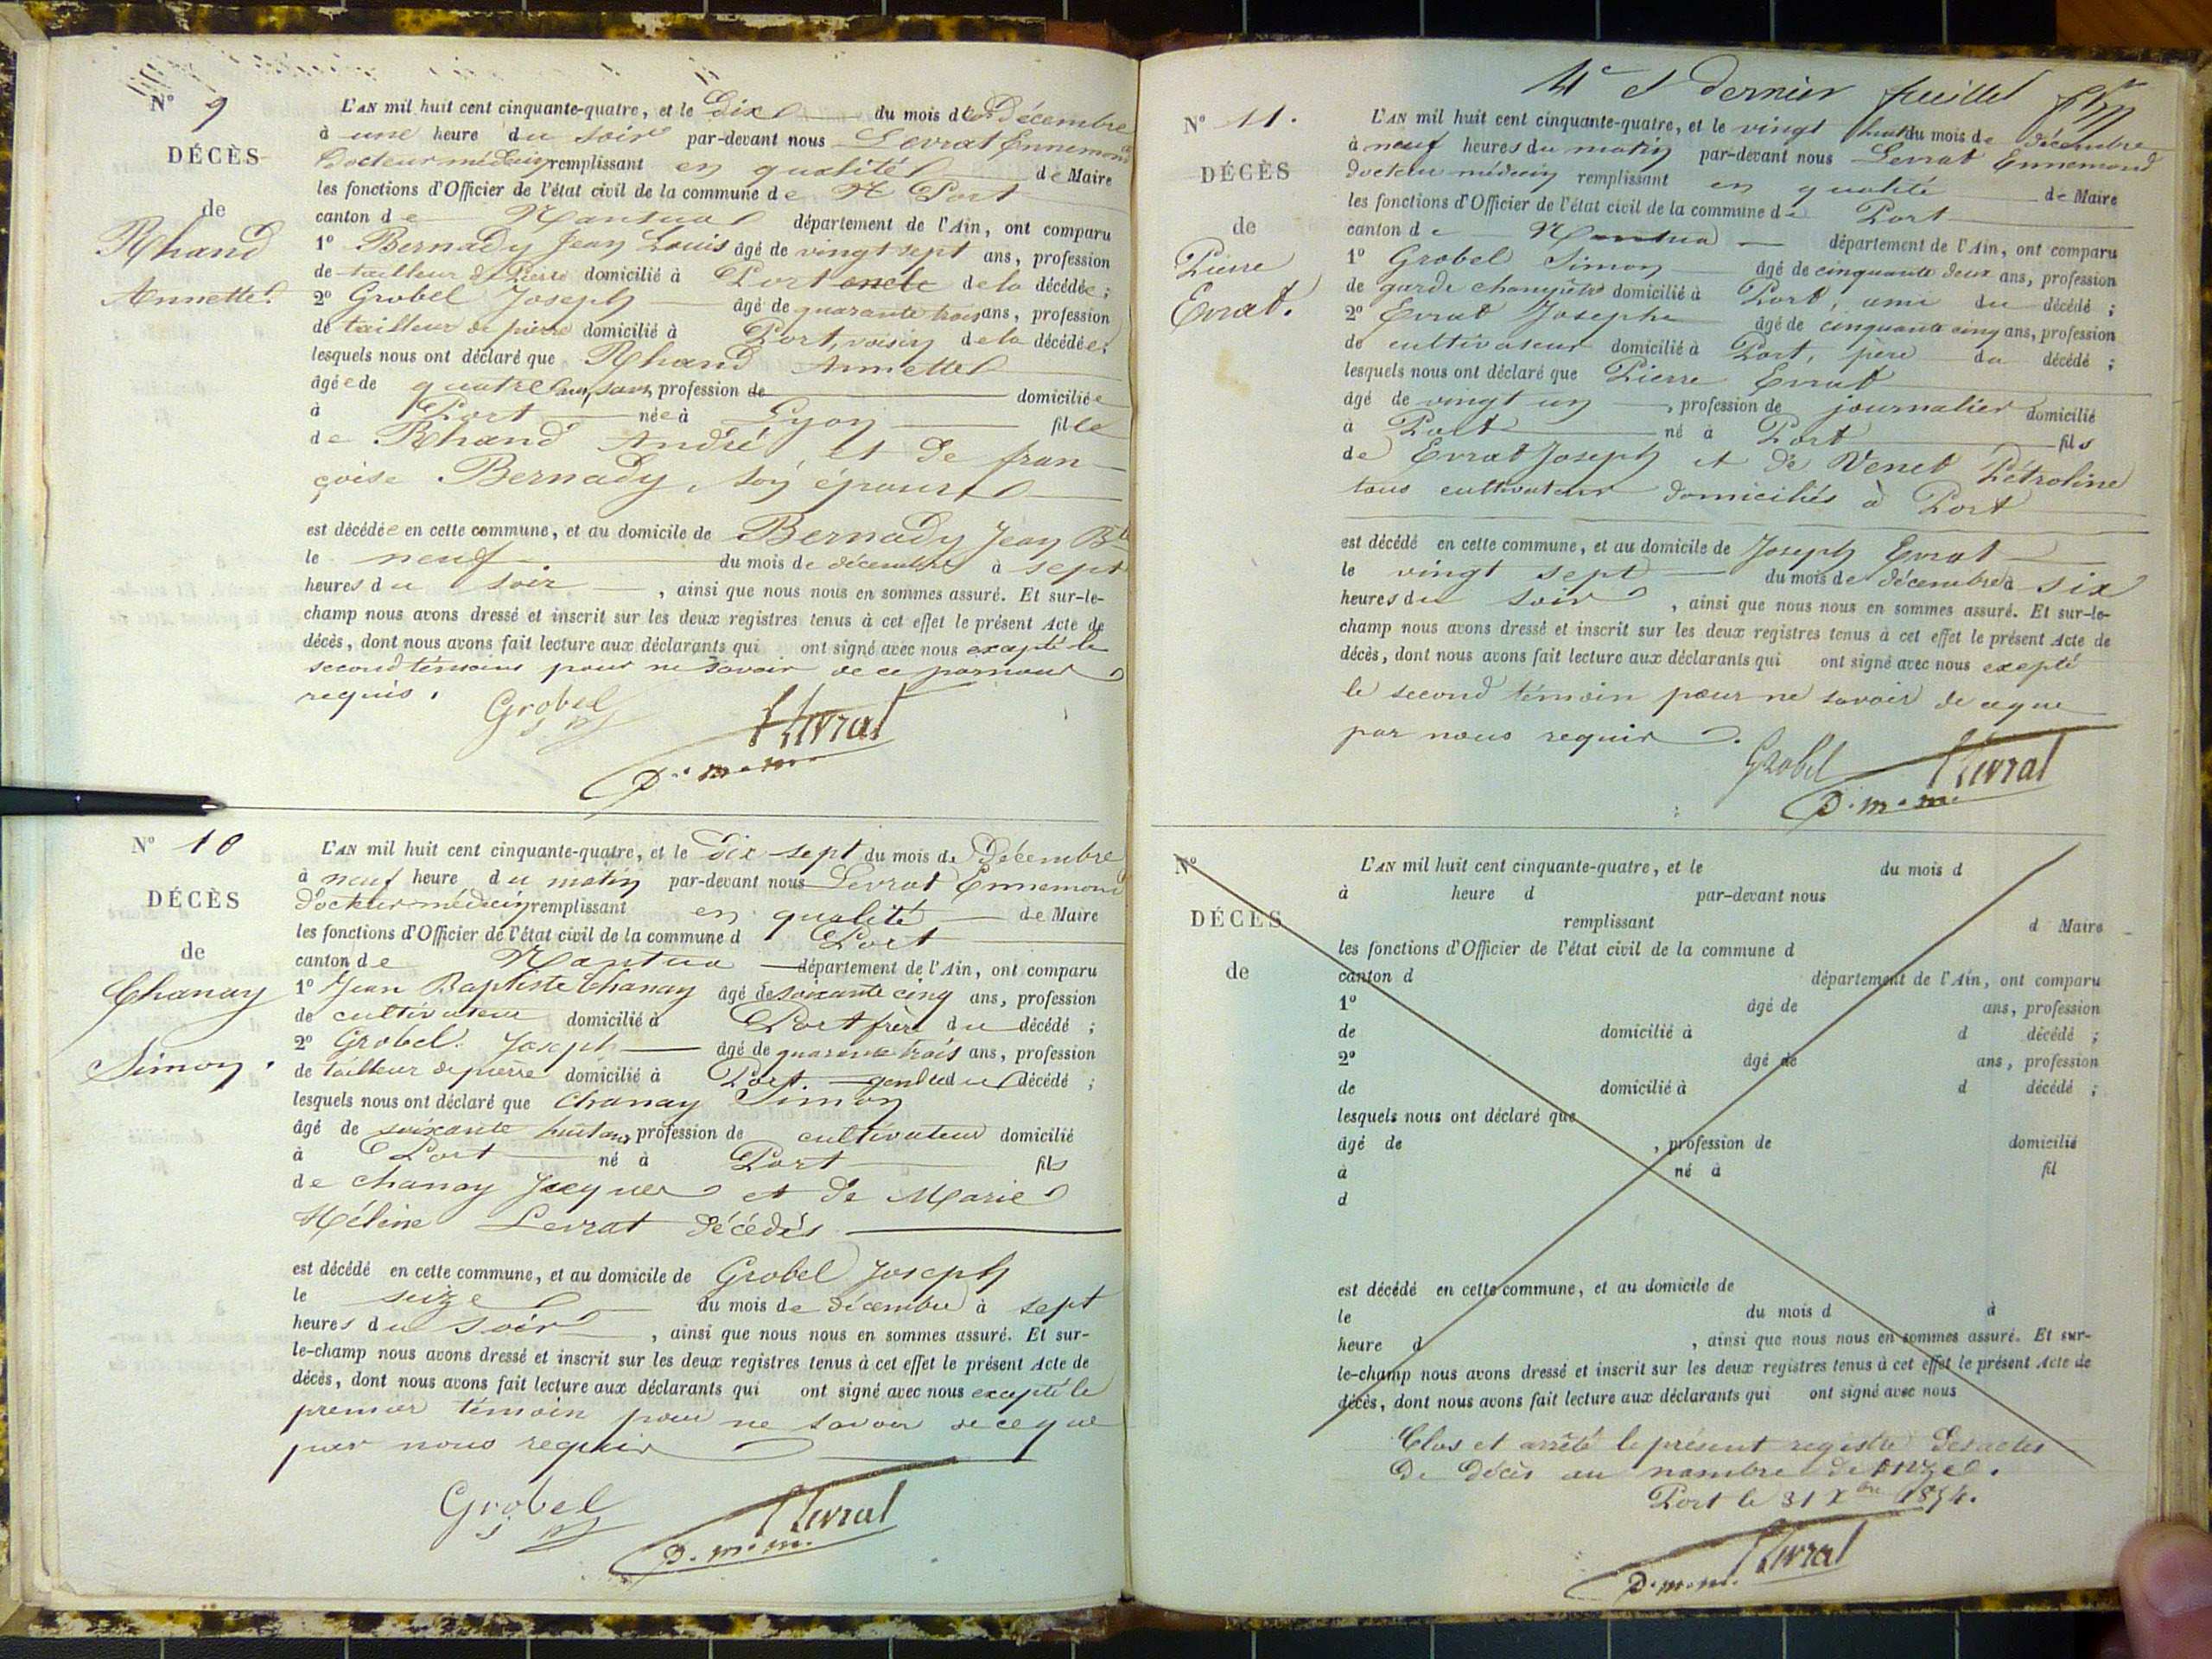 N° 9
DÉCÈS
de
Rhand
Annette.
L'AN mil huit cent cinquante-quatre, et le Dix du mois de Décembre
à une heure du soir par-devant nous Levrat Ennemond
Docteur médecin remplissant en qualité de Maire
les fonctions d'Officier de l'état civil de la commune de Port
canton de Nantua département de l'Ain, ont comparu
1° Bernady Jean Louis âgé de vingt sept ans, profession
de tailleur de Pierre domicilié à Port oncle de la décédée ;
2° Grobel Joseph âgé de quarante trois ans, profession
de tailleur de pierre domicilié à Port, voisin de la décédée ;
lesquels nous ont déclaré que Rhand Annette
âgée de quatre ans, profession de domiciliée
à Port née à Lyon fille
de Rhand André et de fran-
çoise Bernady, son épouse
est décédée en cette commune, et au domicile de Bernady Jean Bte
le neuf du mois de décembre à sept
heures du soir , ainsi que nous nous en sommes assuré. Et sur-le-
champ nous avons dressé et inscrit sur les deux registres tenus à cet effet le présent Acte de
décès, dont nous avons fait lecture aux déclarants qui ont signé avec nous excepté le
second témoins pour ne savoir de ce par nous
requis.
Grobel
Levrat
D. m. m.
N° 10
DÉCÈS
de
Chanay
Simon.
L'AN mil huit cent cinquante-quatre, et le dix sept du mois de Décembre
à neuf heure du matin par-devant nous Levrat Ennemond
Docteur médecin remplissant en qualité de Maire
les fonctions d'Officier de l'état civil de la commune d Port
canton de Nantua département de l'Ain, ont comparu
1° Jean Baptiste Chanay âgé de soixante cinq ans, profession
de cultivateur domicilié à Port frère du décédé ;
2° Grobel Joseph âgé de quarante trois ans, profession
de tailleur de pierre domicilié à Port. gendre du décédé ;
lesquels nous ont déclaré que Chanay Simon
âgé de soixante huit ans, profession de cultivateur domicilié
à Port né à Port fils
de Chanay Jacques et de Marie
Héline Levrat décédés
est décédé en cette commune, et au domicile de Grobel Joseph
le seize du mois de décembre à sept
heures du soir , ainsi que nous nous en sommes assuré. Et sur-
le-champ nous avons dressé et inscrit sur les deux registres tenus à cet effet le présent Acte de
décès, dont nous avons fait lecture aux déclarants qui ont signé avec nous excepté le
premier témoin pour ne savoir de ce que
par nous requis
Grobel
Levrat
D. m. m.
4e et dernier feuillet
N° 11.
DÉCÈS
de
Pierre
Evrat.
L'AN mil huit cent cinquante-quatre, et le vingt huit du mois de Décembre
à neuf heures du matin par-devant nous Levrat Ennemond
docteur médecin remplissant en qualité de Maire
les fonctions d'Officier de l'état civil de la commune de Port
canton de Nantua département de l'Ain, ont comparu
1° Grobel Simon âgé de cinquante deux ans, profession
de garde champêtre domicilié à Port, ami du décédé ;
2° Evrat Josephe âgé de cinquante cinq ans, profession
de cultivateur domicilié à Port, père du décédé ;
lesquels nous ont déclaré que Pierre Evrat
âgé de vingt un , profession de journalier domicilié
à Port né à Port fils
de Evrat Joseph et de Venet Pétroline
tous cultivateur domiciliés à Port
est décédé en cette commune, et au domicile de Joseph Evrat
le vingt sept du mois de décembre à six
heures du soir , ainsi que nous nous en sommes assuré. Et sur-le-
champ nous avons dressé et inscrit sur les deux registres tenus à cet effet le présent Acte de
décès, dont nous avons fait lecture aux déclarants qui ont signé avec nous exepté
le second témoin pour ne savoir de ce que
par nous requis.
Grobel
Levrat
D. m. m.
N°
DÉCÈS
de
L'AN mil huit cent cinquante-quatre, et le du mois d
à heure d par-devant nous
remplissant d Maire
les fonctions d'Officier de l'état civil de la commune d
canton d département de l'Ain, ont comparu
1° âgé de ans, profession
de domicilié à d décédé ;
2° âgé de ans, profession
de domicilié à d décédé ;
lesquels nous ont déclaré que
âgé de , profession de domicilié
à né à fil
d
est décédé en cette commune, et au domicile de
le du mois d à
heure d , ainsi que nous nous en sommes assuré. Et sur-
le-champ nous avons dressé et inscrit sur les deux registres tenus à cet effet le présent Acte de
décès, dont nous avons fait lecture aux déclarants qui ont signé avec nous
Clos et arrêté le présent registre des actes
De décès au nombre de onze.
Port le 31 Xbre 1854.
Levrat
D. m. m.